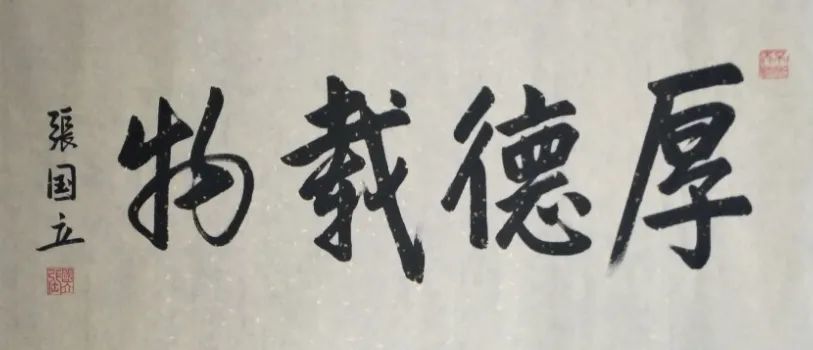 厚德載物
張国立